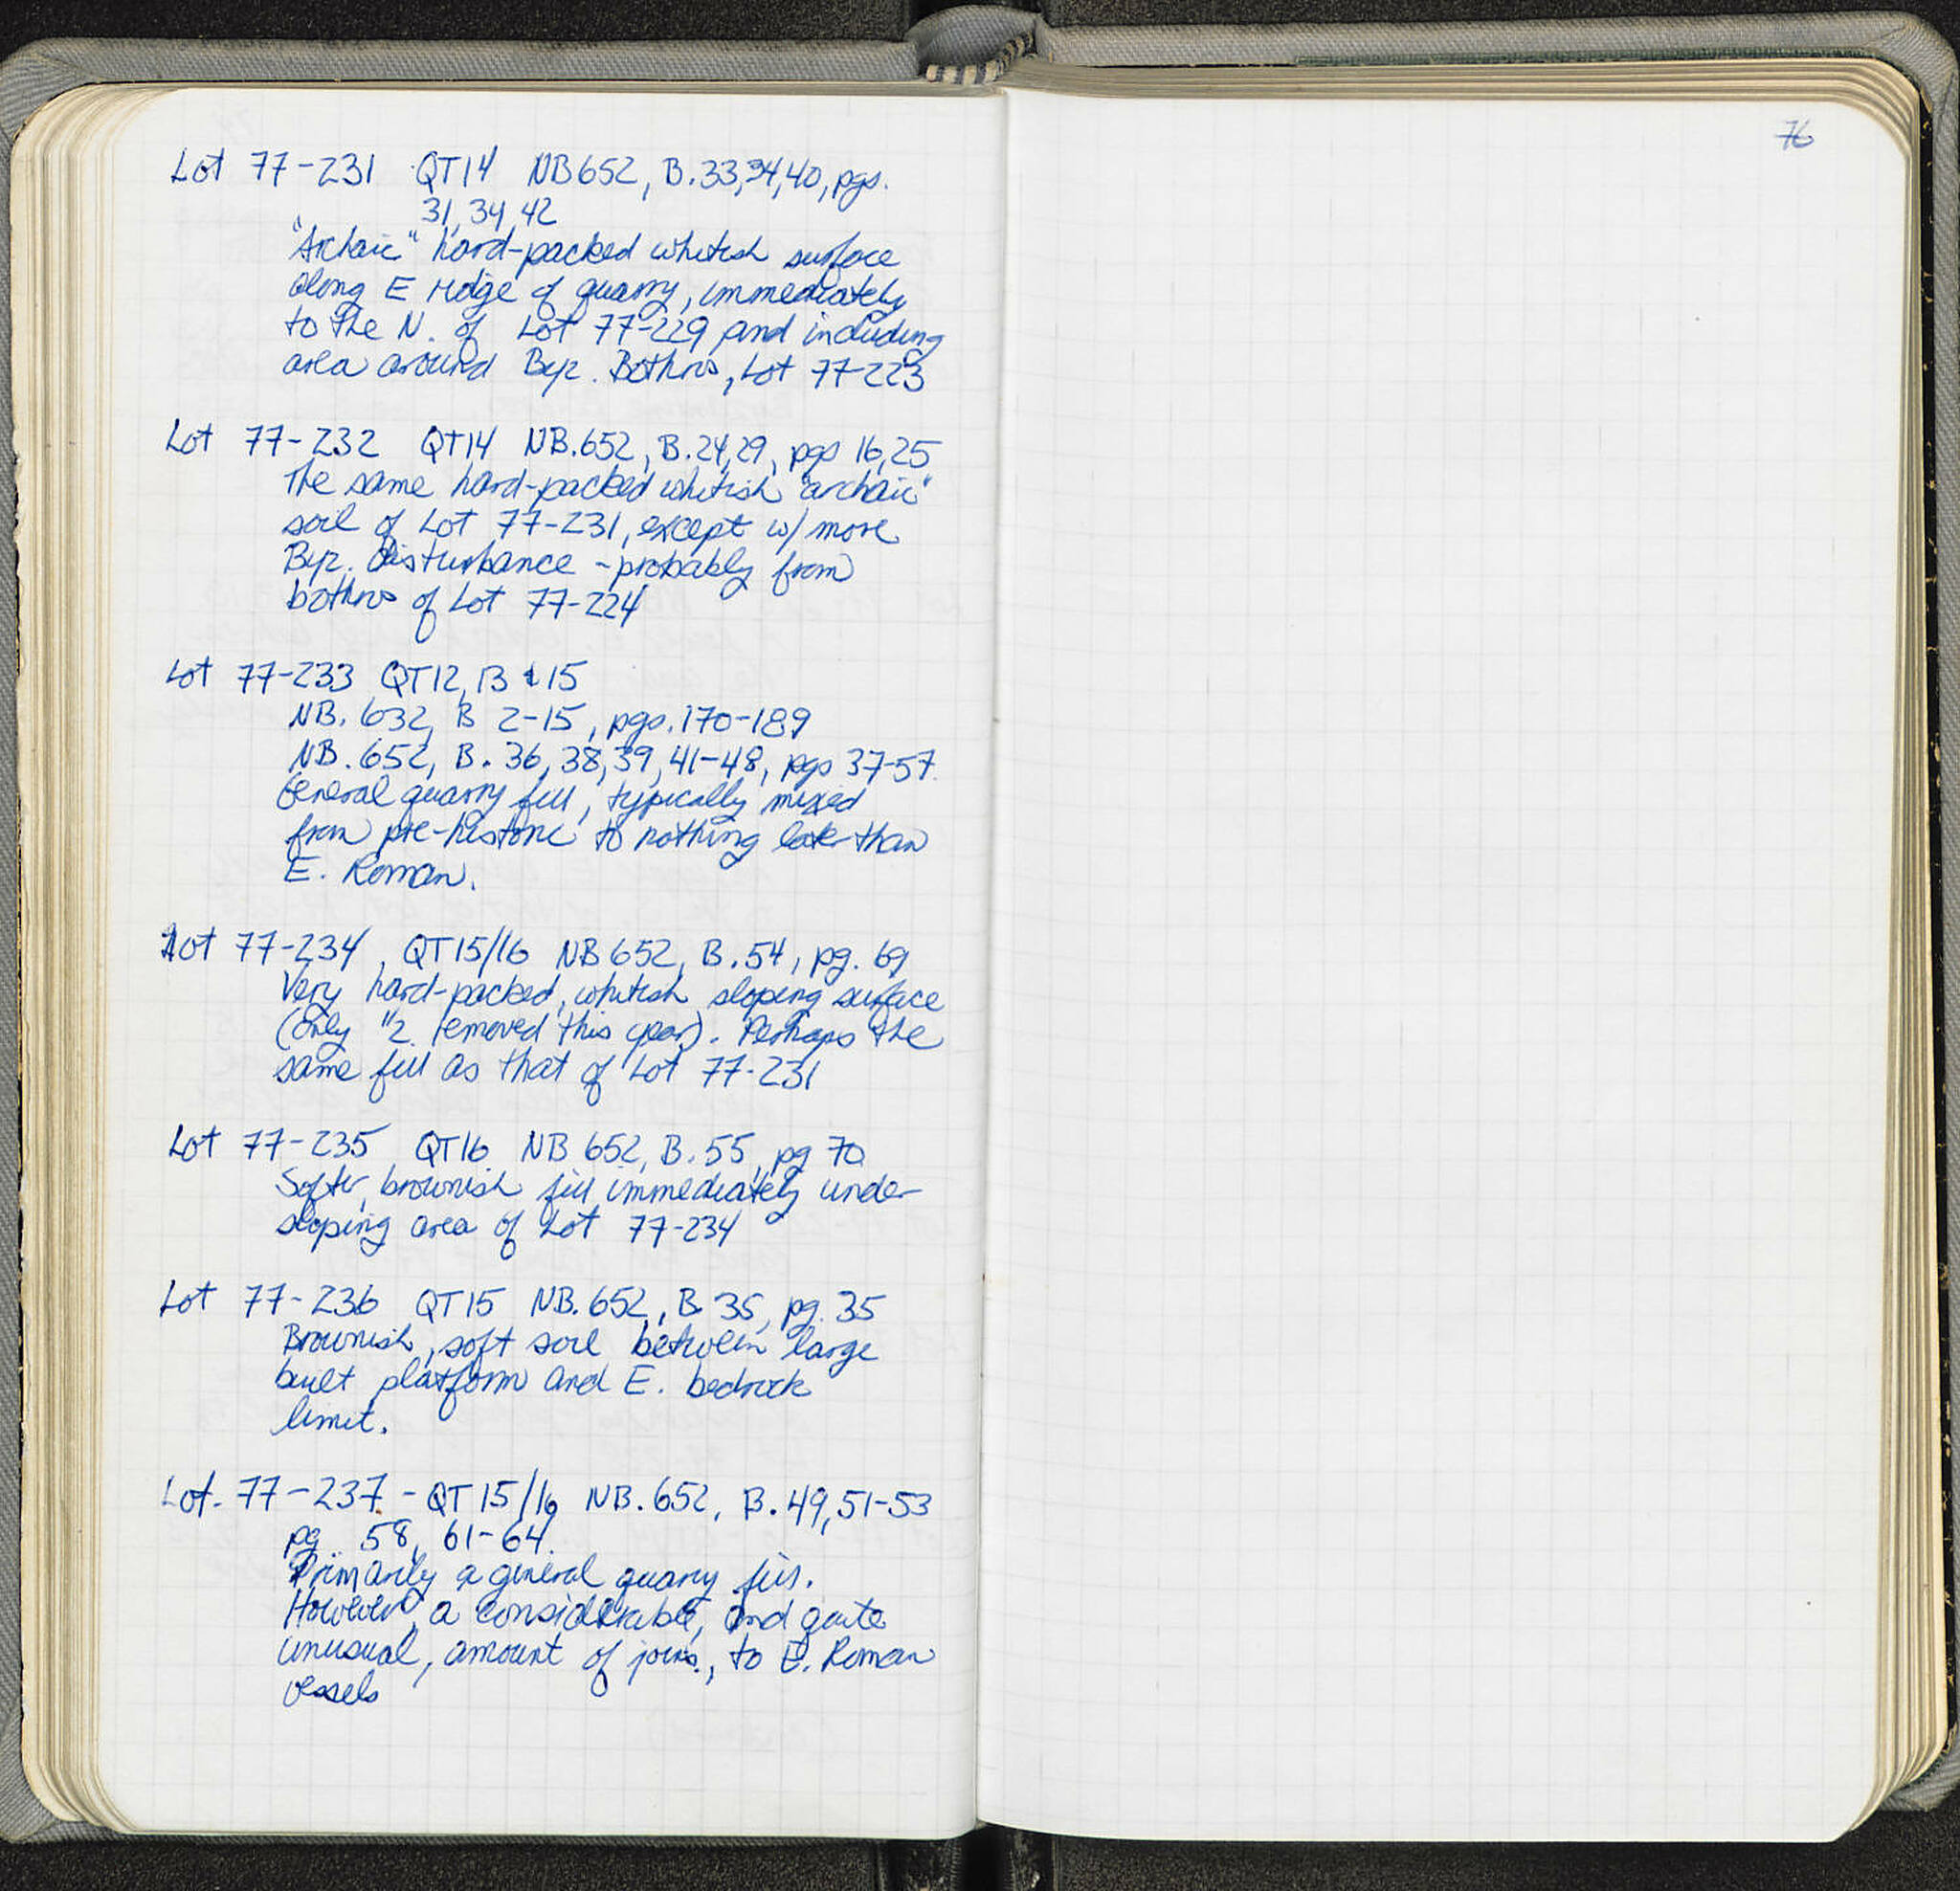 Lot 77-231 QT14 NB652, B.33,34,40, pgs.
31, 34, 42
"Archaic" hard-packed whitish surface
along E ridge of quarry, immediately
to the N. of Lot 77-229 and including
area around Byz. Bothros, Lot 77-223
Lot 77-232 QT14 NB.652, B.24,29, pgs 16,25
The same hard-packed whitish "archaic"
soil of Lot 77-231, except w/ more
Byz. disturbance - probably from
bothros of Lot 77-224
Lot 77-233 QT12, 13 & 15
NB. 632, B 2-15, pgs. 170-189
NB. 652, B. 36, 38, 39, 41-48, pgs 37-57.
General quarry fill, typically mixed
from pre-historic to nothing later than
E. Roman.
Lot 77-234, QT15/16 NB 652, B.54, pg. 69
Very hard-packed, whitish sloping surface
(only "2 removed this year). Perhaps the
same fill as that of Lot 77-231
Lot 77-235 QT16 NB 652, B.55, pg 70
Softer, brownish fill immediately under
sloping area of Lot 77-234
Lot 77-236 QT15 NB.652, B 35, pg. 35
Brownish, soft soil between large
built platform and E. bedrock
limit.
Lot. 77-237. - QT 15/16 NB. 652, B. 49, 51-53
pg 58, 61-64.
Primarily a general quarry fill.
However, a considerable, and quite
unusual, amount of joins, to E. Roman
vessels
76